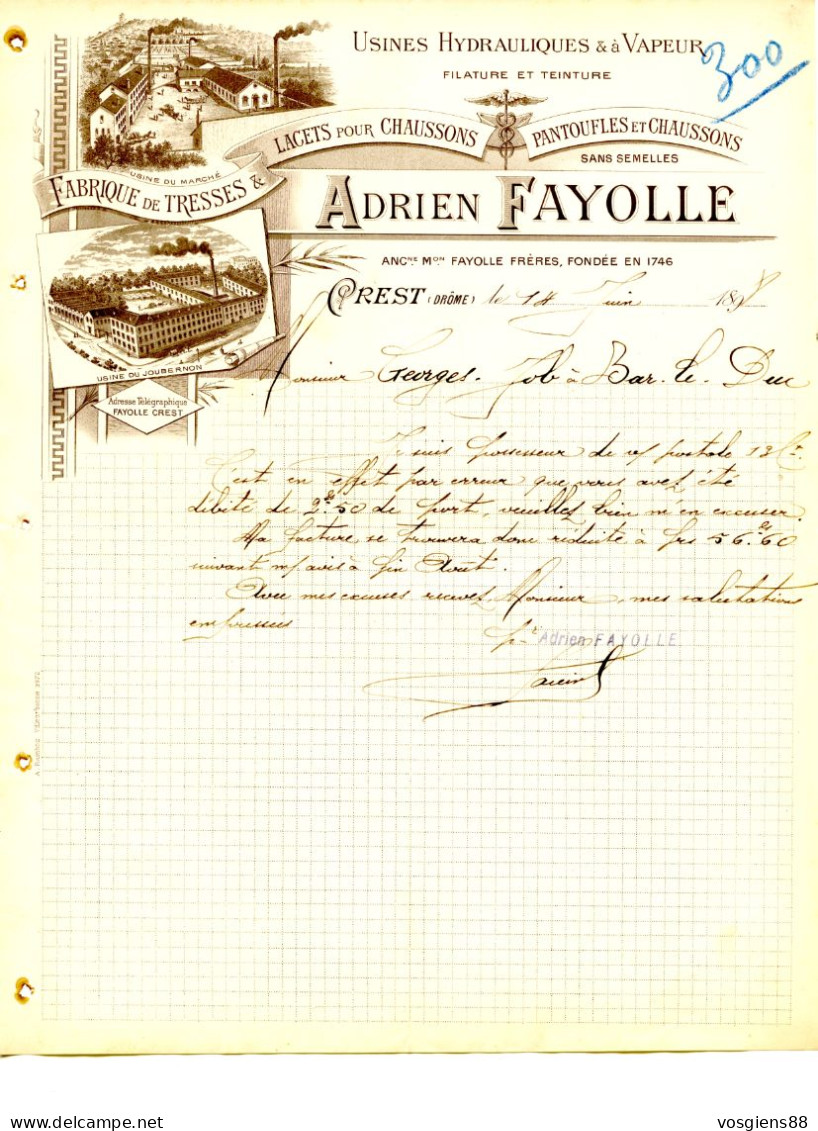 USINES HYDRAULIQUES & à VAPEUR
300
FILATURE ET TEINTURE
LACETS POUR CHAUSSONS
PANTOUFLES ET CHAUSSONS
SANS SEMELLES
USINE DU MARCHÉ
FABRIQUE DE TRESSES &
ADRIEN FAYOLLE
ANCNE MON FAYOLLE FRÈRES, FONDÉE EN 1746
CREST (DRÔME) le 14 Juin 189
USINE DU JOUBERNON
Monsieur Georges Job à Bar-le-Duc
Adresse Télégraphique
FAYOLLE CREST
Je suis possesseur de v/ postale 13 Ct
C'est en effet par erreur que vous avez été
débité de 2fs50 de port, veuillez bien m'en excuser.
Ma facture se trouvera donc réduite à frs 56.60
suivant m/ avis à fin Août.
Avec mes excuses recevez, Monsieur, mes salutations
empressées
pr Adrien FAYOLLE.
vosgiens88